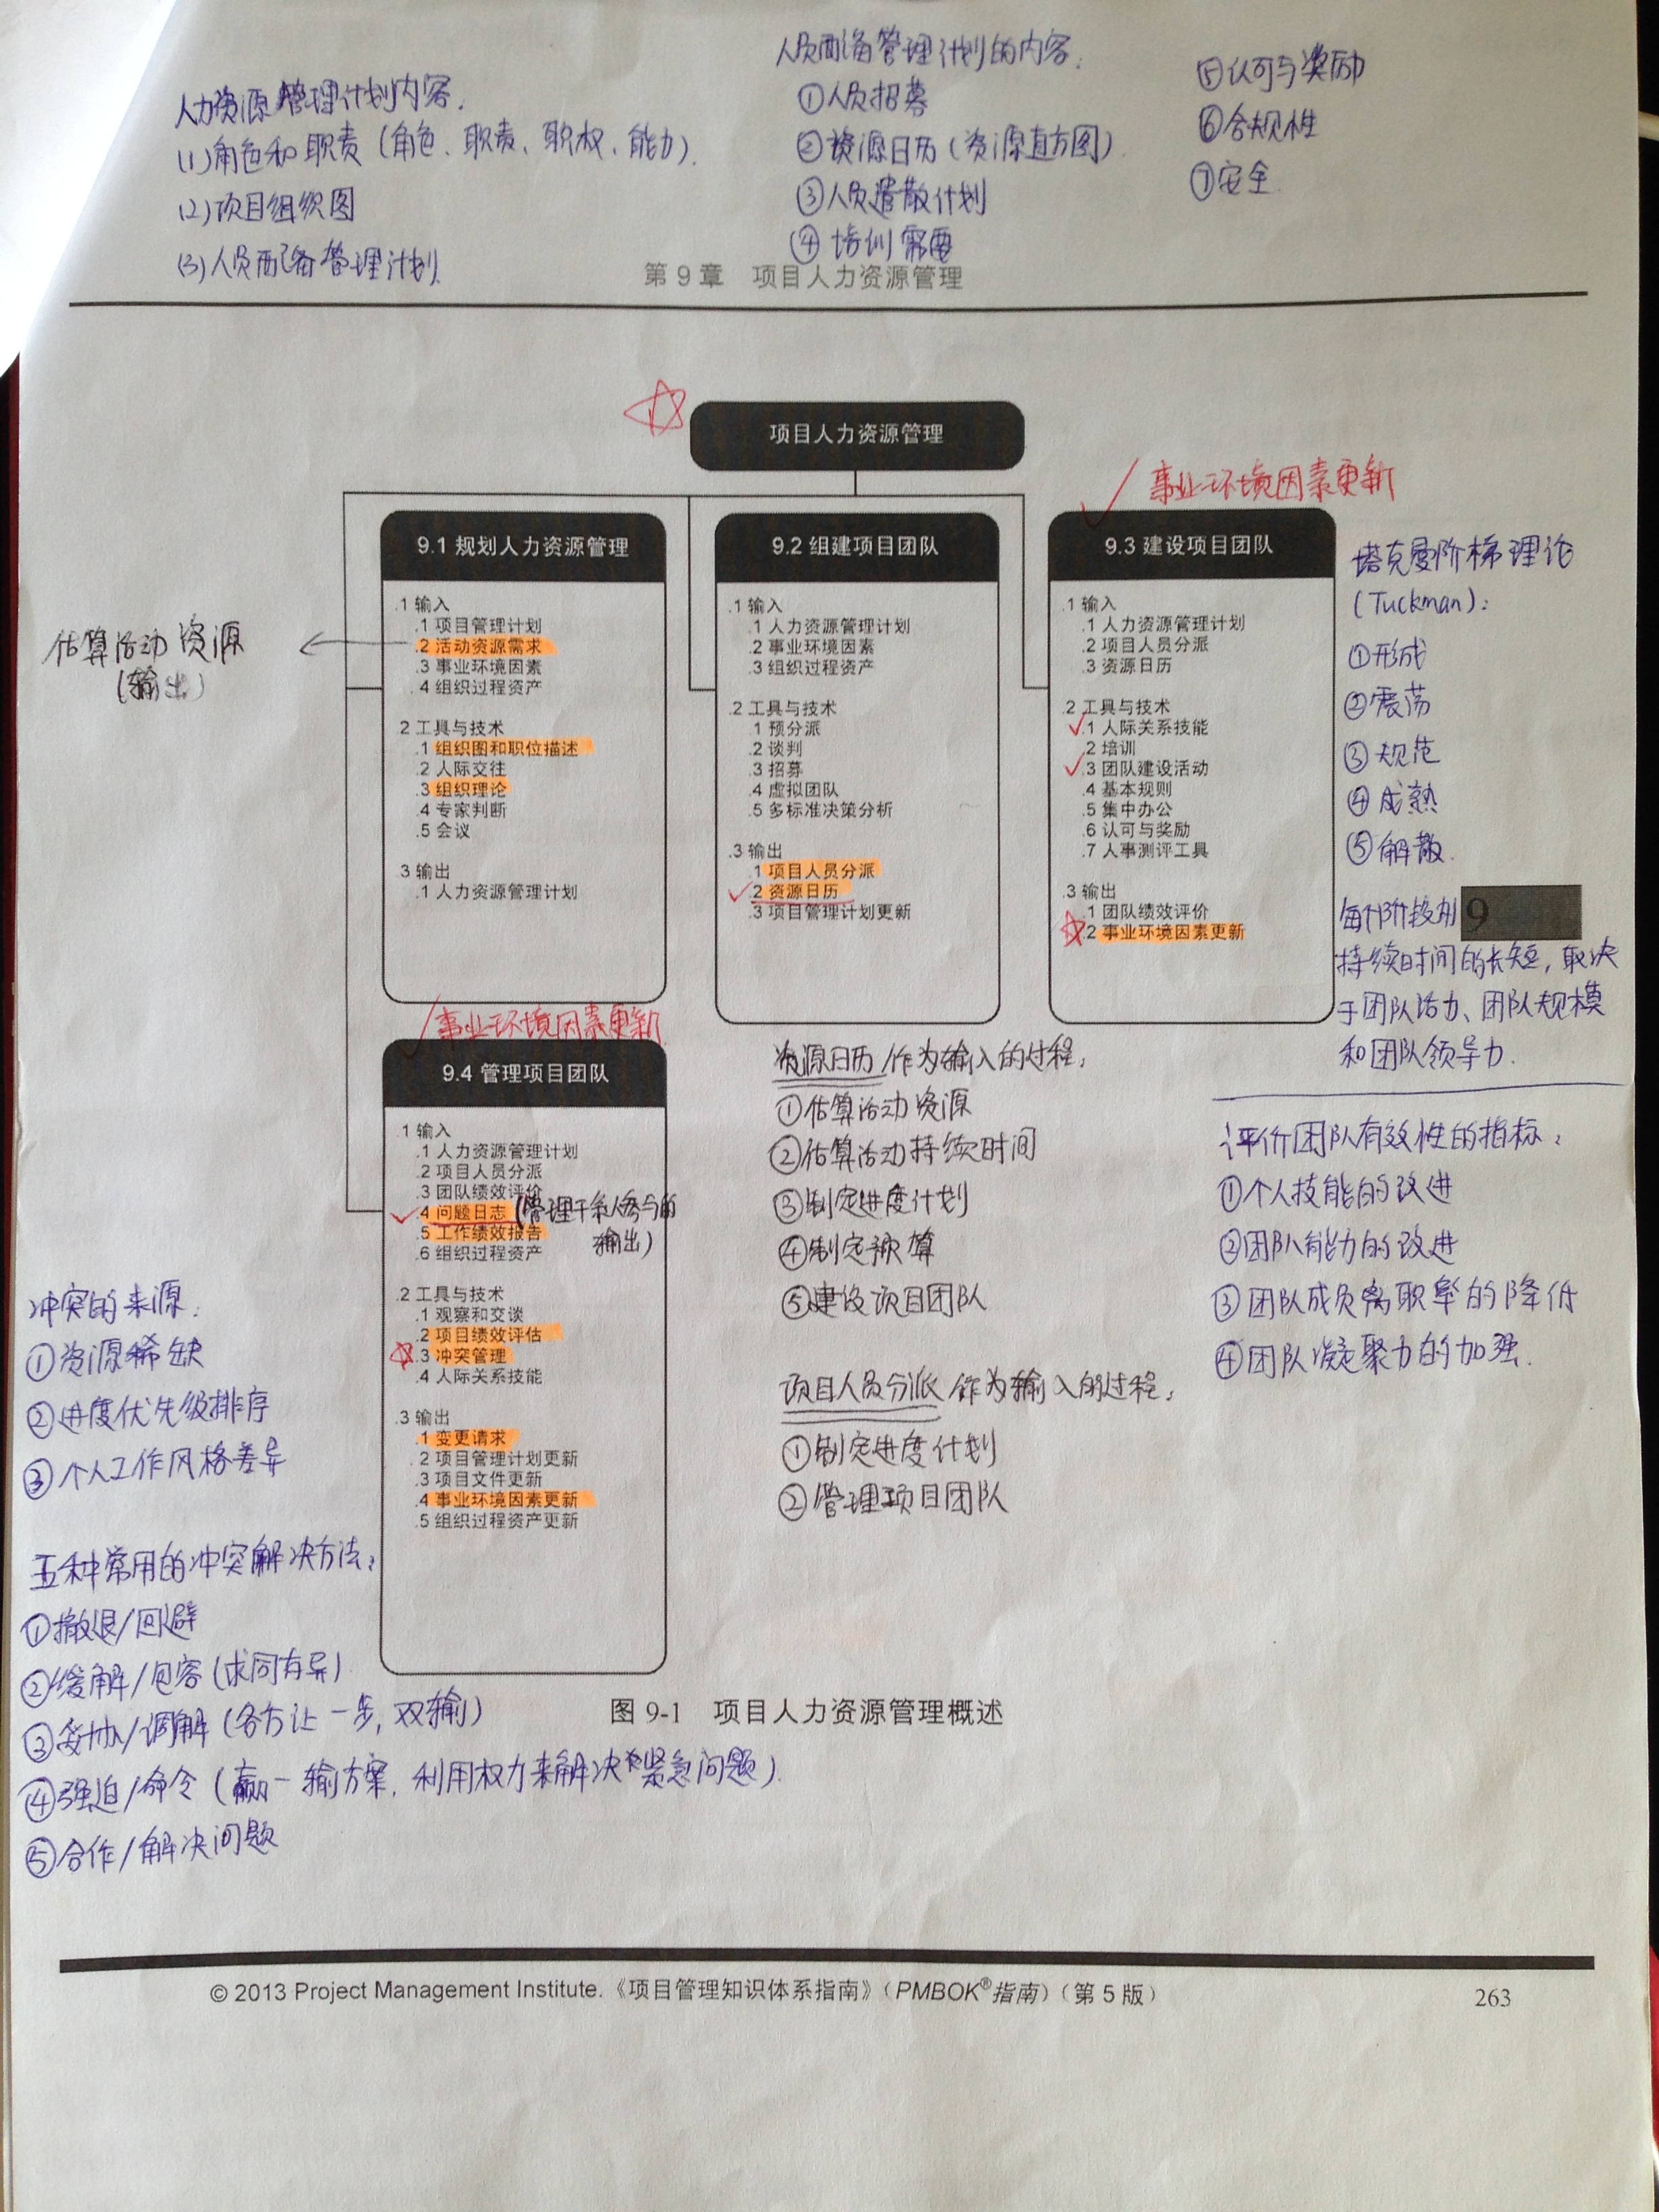 人力资源管理计划内容.
(1)角色和职责(角色、职责、职权、能力).
(2)项目组织图
(3)人员配备管理计划.
人员配备管理计划的内容:
①人员招募
②资源日历(资源直方图)
③人员遣散计划
④培训需要
⑤认可与奖励
⑥合规性
⑦安全.
第 9 章 项目人力资源管理
项目人力资源管理
9.1 规划人力资源管理
.1 输入
.1 项目管理计划
.2 活动资源需求
.3 事业环境因素
.4 组织过程资产
.2 工具与技术
.1 组织图和职位描述
.2 人际交往
.3 组织理论
.4 专家判断
.5 会议
.3 输出
.1 人力资源管理计划
估算活动资源
(输出)
9.2 组建项目团队
.1 输入
.1 人力资源管理计划
.2 事业环境因素
.3 组织过程资产
.2 工具与技术
.1 预分派
.2 谈判
.3 招募
.4 虚拟团队
.5 多标准决策分析
.3 输出
.1 项目人员分派
.2 资源日历
.3 项目管理计划更新
事业环境因素更新
9.3 建设项目团队
.1 输入
.1 人力资源管理计划
.2 项目人员分派
.3 资源日历
.2 工具与技术
.1 人际关系技能
.2 培训
.3 团队建设活动
.4 基本规则
.5 集中办公
.6 认可与奖励
.7 人事测评工具
.3 输出
.1 团队绩效评价
.2 事业环境因素更新
塔克曼阶梯理论
(Tuckman):
①形成
②震荡
③规范
④成熟
⑤解散.
9
每个阶段
持续时间的长短, 取决
于团队活力、团队规模
和团队领导力.
事业环境因素更新
9.4 管理项目团队
.1 输入
.1 人力资源管理计划
.2 项目人员分派
.3 团队绩效评价
.4 问题日志 (管理干系人参与的
输出)
.5 工作绩效报告
.6 组织过程资产
.2 工具与技术
.1 观察和交谈
.2 项目绩效评估
.3 冲突管理
.4 人际关系技能
.3 输出
.1 变更请求
.2 项目管理计划更新
.3 项目文件更新
.4 事业环境因素更新
.5 组织过程资产更新
资源日历作为输入的过程:
①估算活动资源
②估算活动持续时间
③制定进度计划
④制定预算
⑤建设项目团队
项目人员分派作为输入的过程:
①制定进度计划
②管理项目团队
评价团队有效性的指标:
①个人技能的改进
②团队能力的改进
③团队成员离职率的降低
④团队凝聚力的加强.
冲突的来源:
①资源稀缺
②进度优先级排序
③个人工作风格差异
五种常用的冲突解决方法:
①撤退/回避
②缓解/包容(求同存异)
③妥协/调解(各方让一步, 双输)
④强迫/命令(赢—输方案, 利用权力来解决紧急问题).
⑤合作/解决问题
图 9-1 项目人力资源管理概述
© 2013 Project Management Institute.《项目管理知识体系指南》(PMBOK®指南)(第 5 版)
263